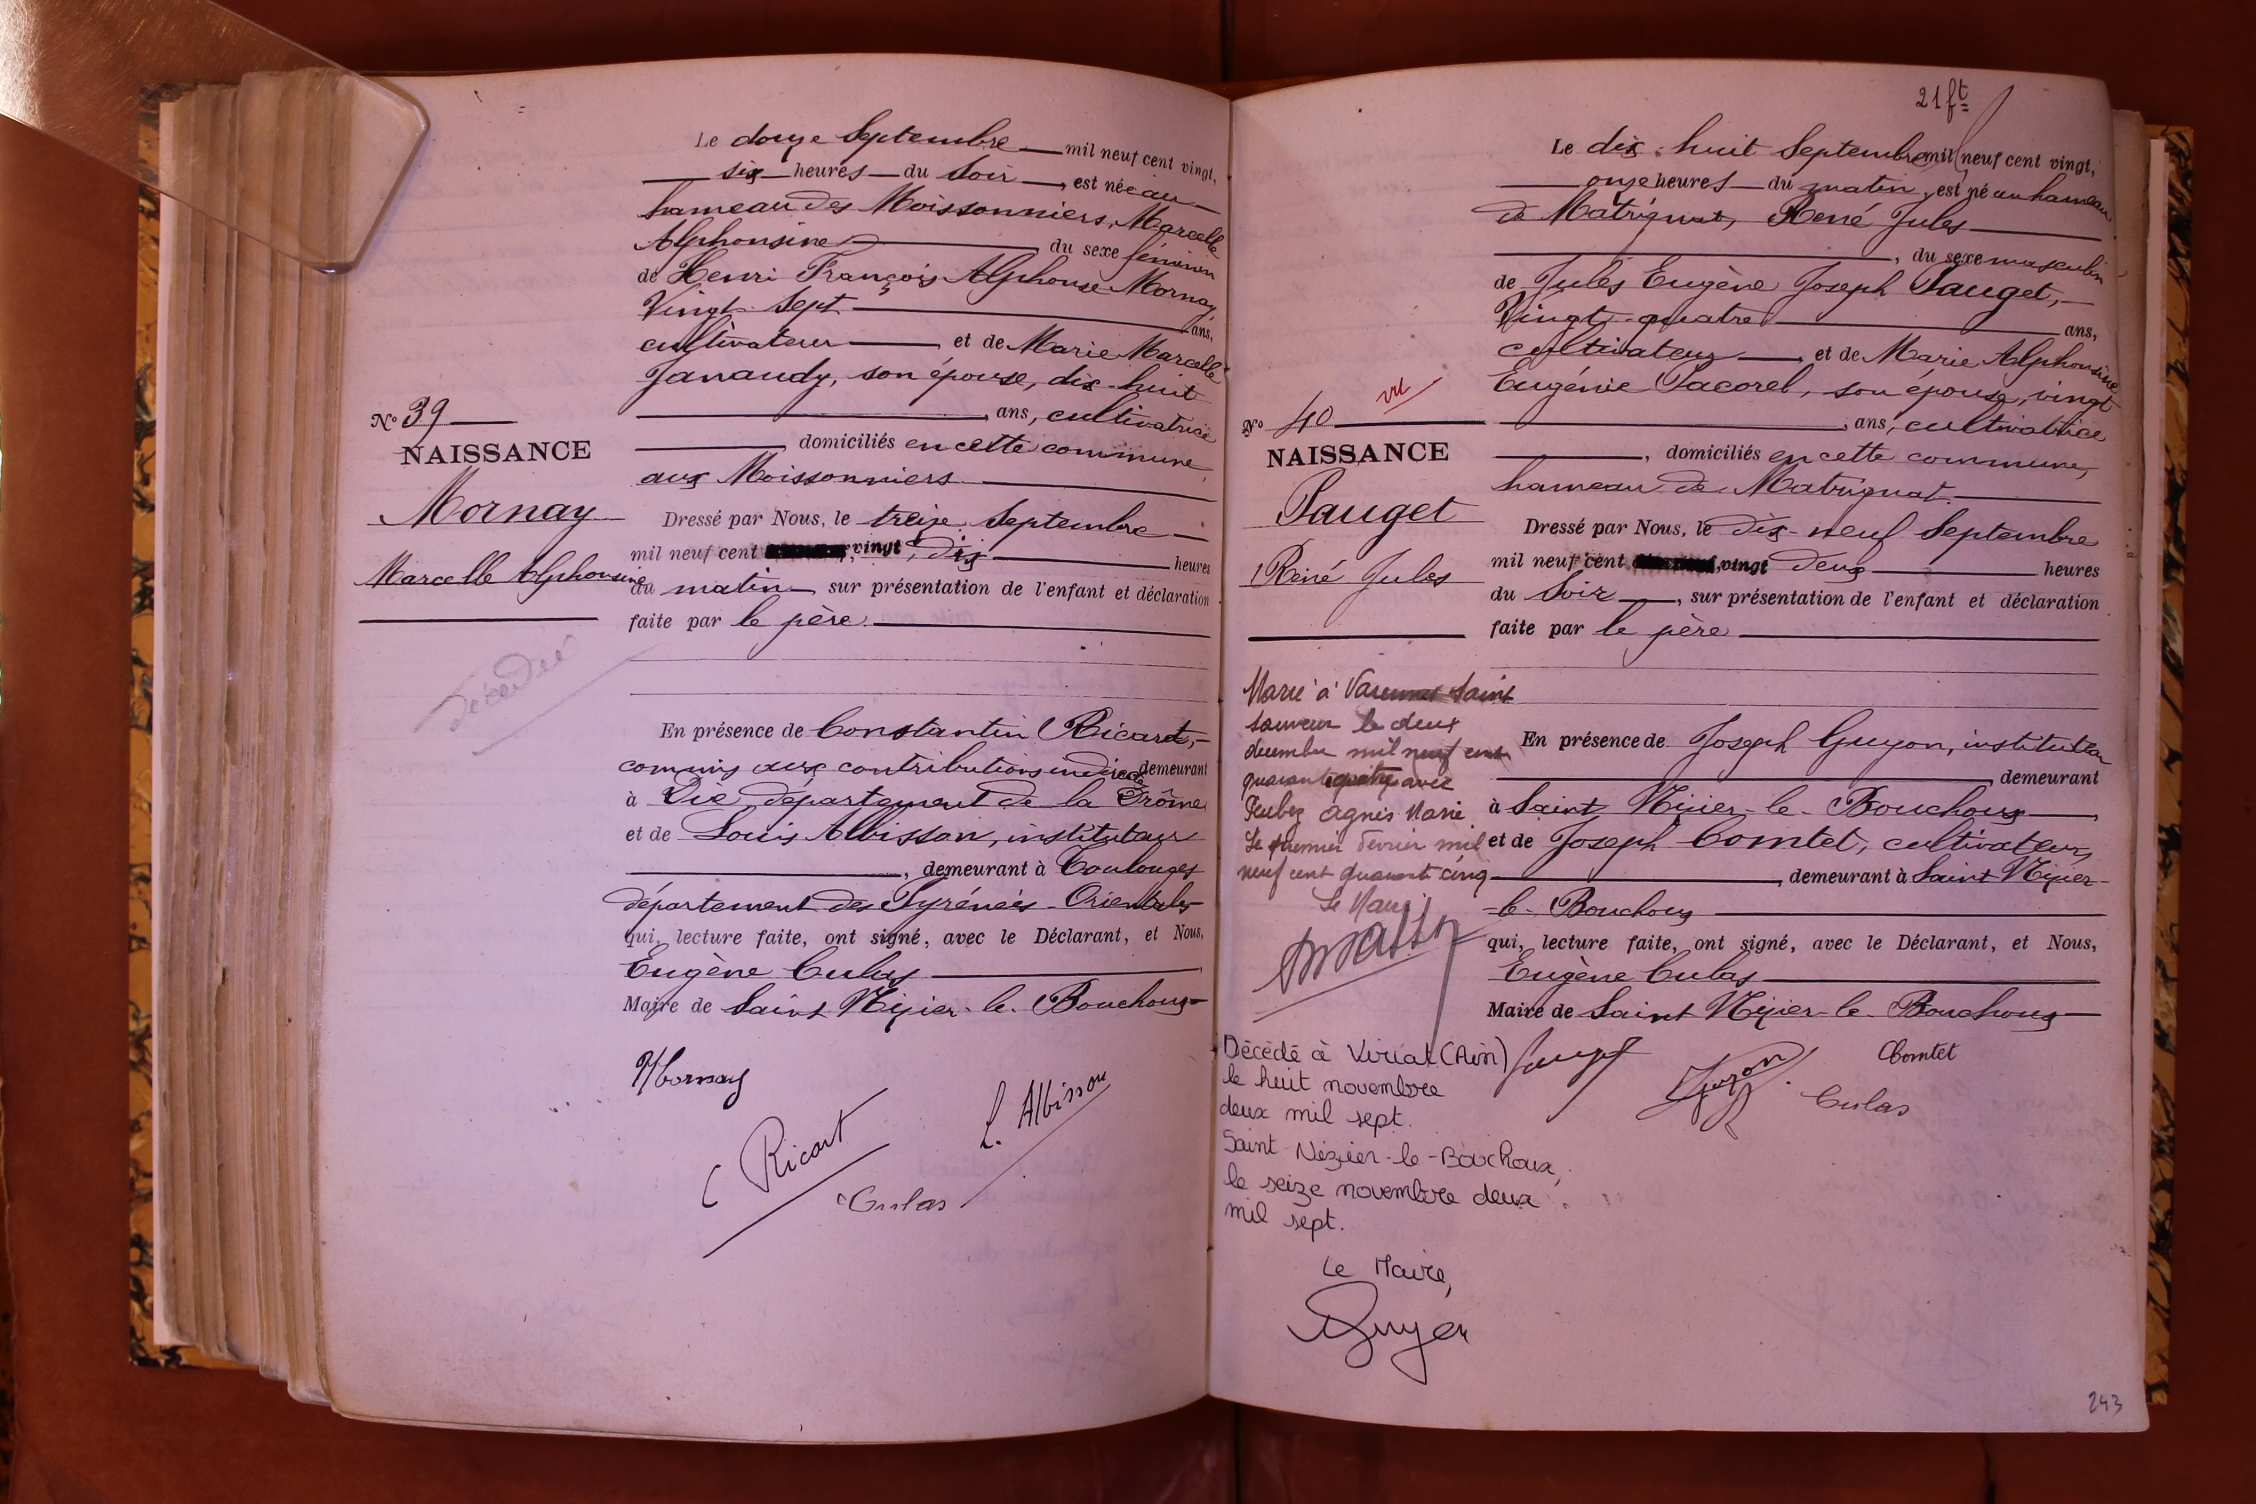 Le douze Septembre mil neuf cent vingt,
six heures du Soir, est née au
hameau des Moissonniers, Marcelle
Alphonsine du sexe féminin
de Henri François Alphonse Mornay
Vingt-Sept ans,
cultivateur et de Marie Marcelle
Janaudy, son épouse, dix-huit
ans, cultivatrice
domiciliés en cette commune,
aux Moissonniers
N° 39
NAISSANCE
Mornay
Marcelle Alphonsine
décédée
Dressé par Nous, le treize Septembre
mil neuf cent vingt, dix heures
du matin sur présentation de l'enfant et déclaration
faite par le père.
En présence de Constantin Ricart,
commis aux contributions indirectes demeurant
à Die, département de la Drôme
et de Louis Albisson, instituteur
, demeurant à Toulouges
département des Pyrénées-Orientales
qui, lecture faite, ont signé, avec le Déclarant, et Nous,
Eugène Culas
Maire de Saint Nizier-le-Bouchoux
Mornay
C Ricart
L. Albisson
Culas
21 ft
Le dix-huit Septembre mil neuf cent vingt,
onze heures du matin, est né au hameau
de Matrignat, René Jules
, du sexe masculin
de Jules Eugène Joseph Pauget,
Vingt-quatre ans,
cultivateur, et de Marie Alphonsine
Eugénie Pacorel, son épouse, vingt
ans, cultivatrice
, domiciliés en cette commune,
hameau de Matrignat.
vu
N° 40
NAISSANCE
Pauget
René Jules
Dressé par Nous, le dix-neuf Septembre
mil neuf cent vingt deux heures
du Soir, sur présentation de l'enfant et déclaration
faite par le père
En présence de Joseph Guyon, instituteur
, demeurant
à Saint Nizier-le-Bouchoux,
et de Joseph Comtet, cultivateur,
, demeurant à Saint Nizier-
-le-Bouchoux
qui, lecture faite, ont signé, avec le Déclarant, et Nous,
Eugène Culas
Maire de Saint Nizier-le-Bouchoux
Marié à Varennes Saint
Sauveur le deux
décembre mil neuf cent
quarante quatre avec
Agnès Marie
Le premier février mil
neuf cent quarante cinq
Le Maire
Pauget
Guyon
Comtet
Culas
Décédé à Viriat (Ain)
le huit novembre
deux mil sept.
Saint-Nizier-le-Bouchoux,
le seize novembre deux
mil sept.
Le Maire,
243